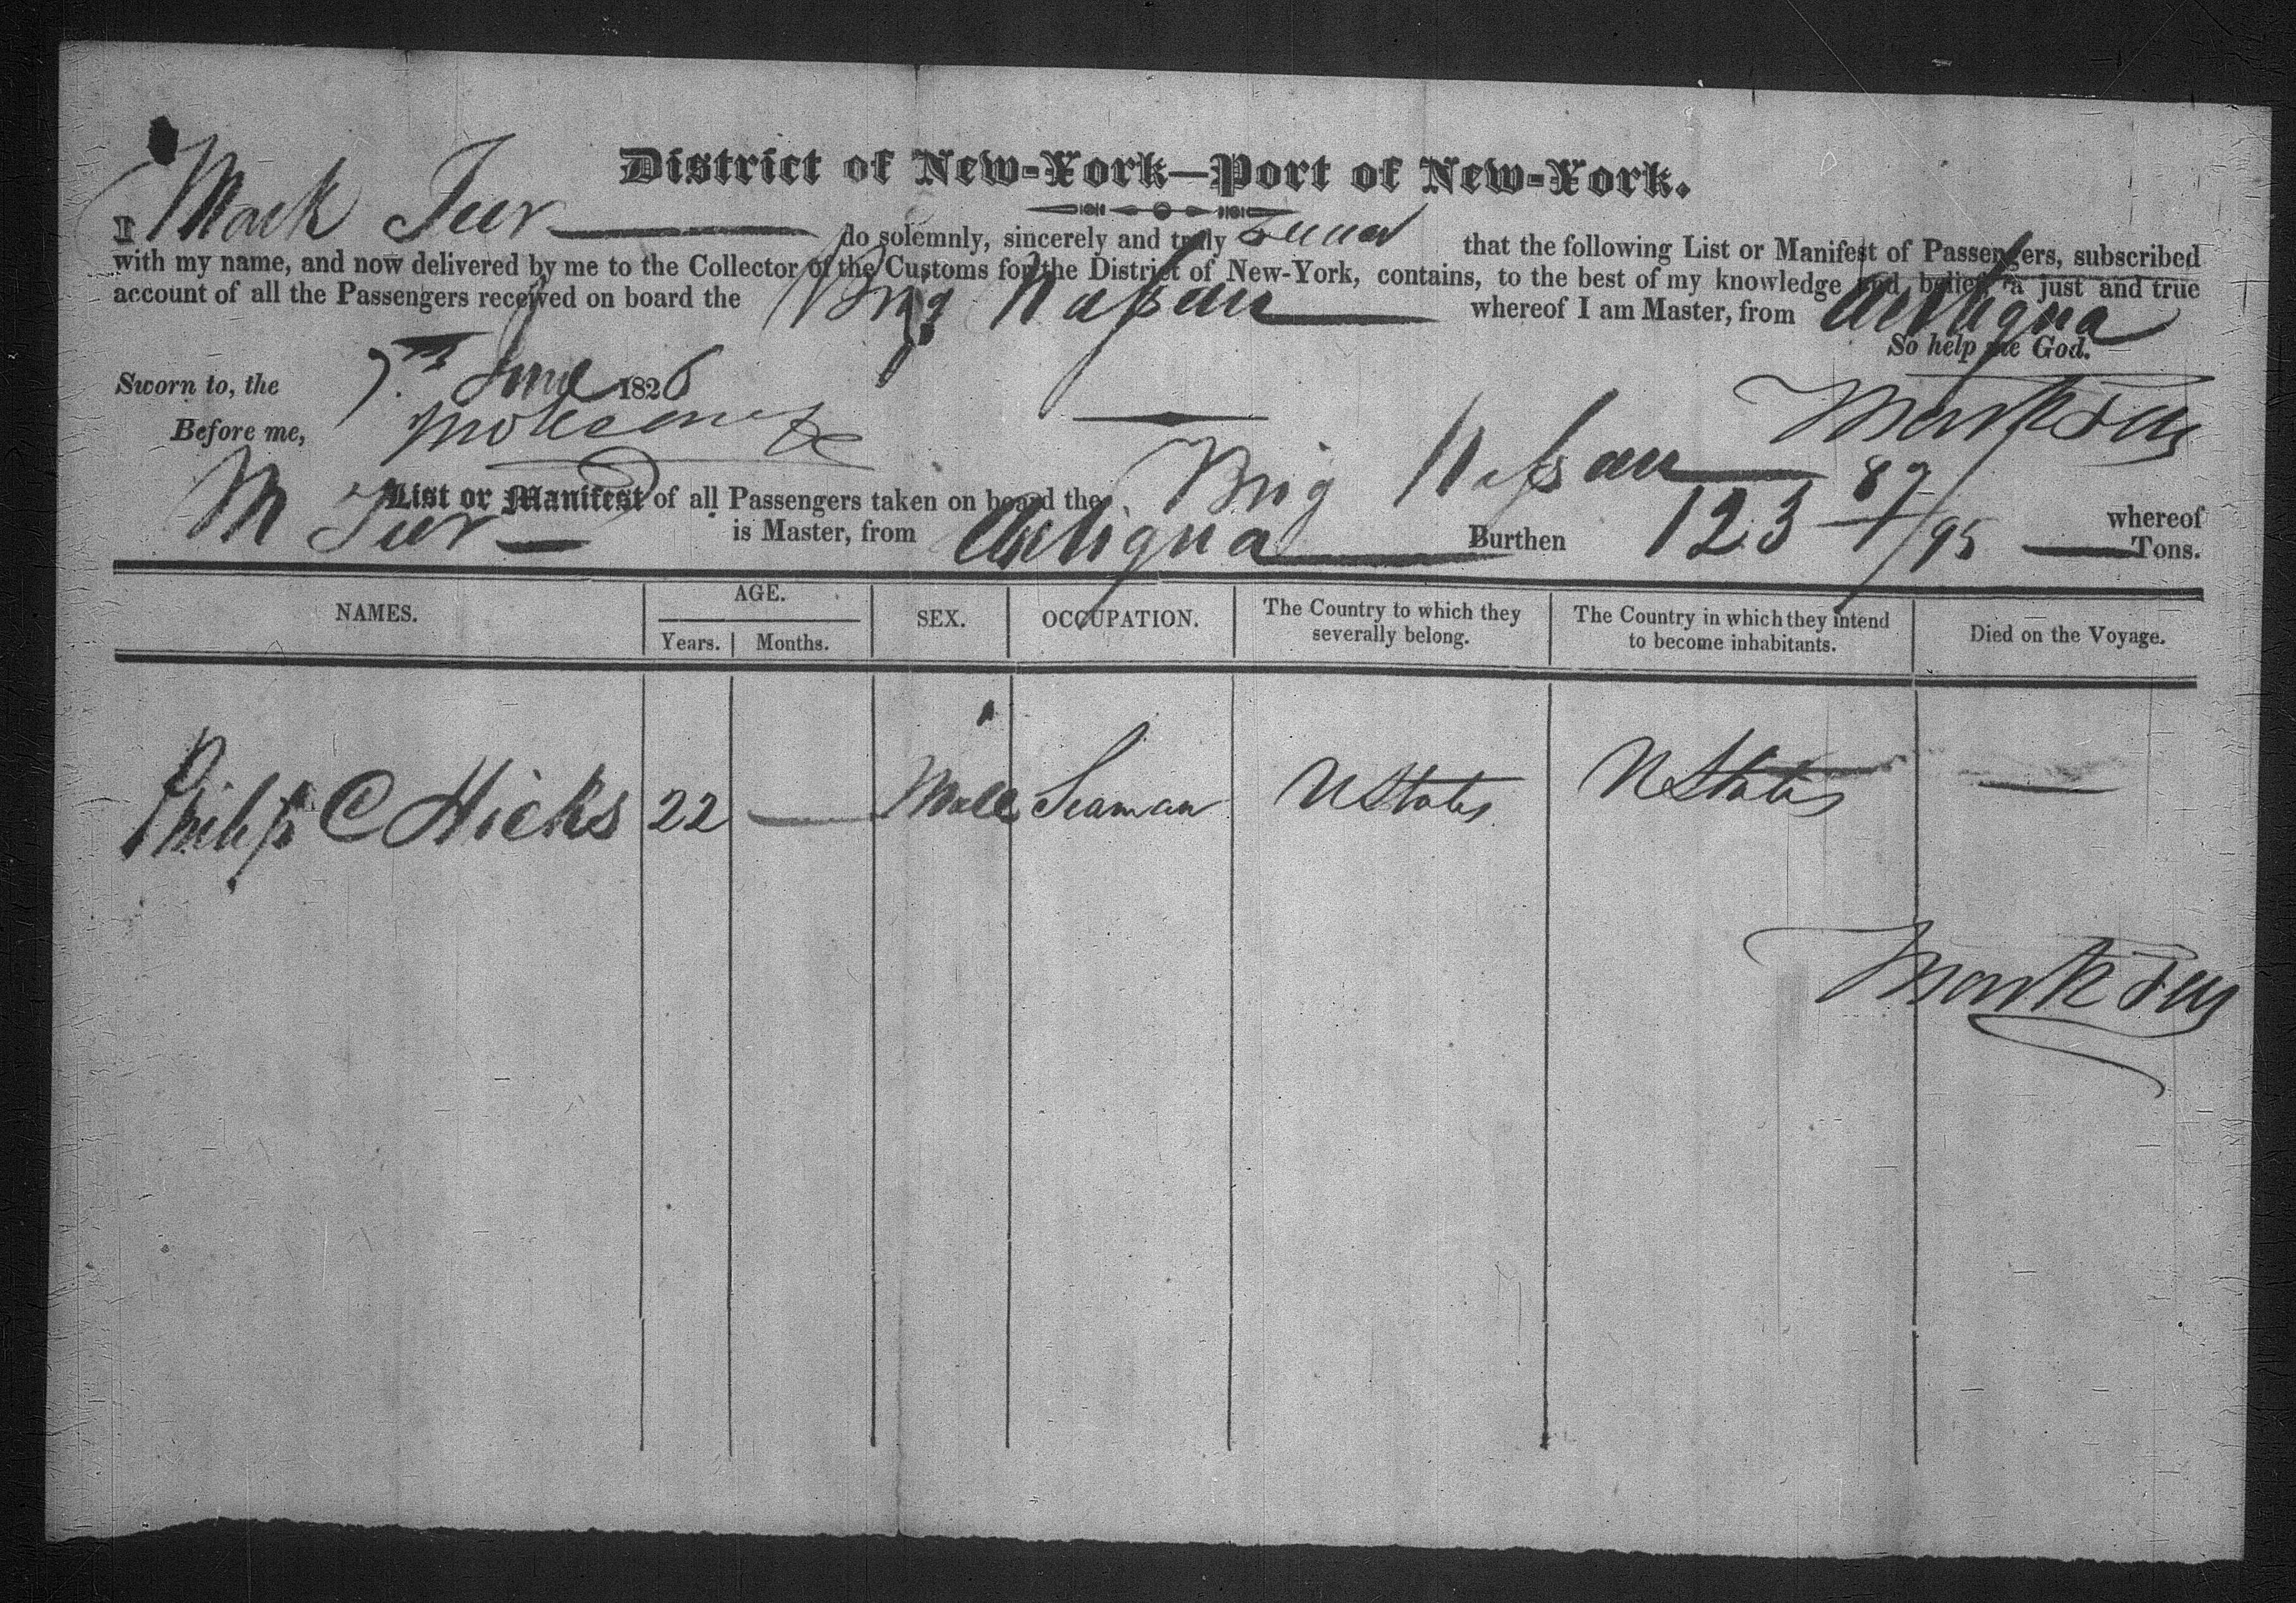 District of New-York—Port of New-York.
I Mark Teer do solemnly, sincerely and truly swear that the following List or Manifest of Passengers, subscribed
with my name, and now delivered by me to the Collector of the Customs for the District of New-York, contains, to the best of my knowledge and belief, a just and true
account of all the Passengers received on board the Brig Nassau whereof I am Master, from Antigua
So help me God.
Sworn to, the 7th June 1826
Before me,
Mark
List or Manifest of all Passengers taken on board the Brig Nassau whereof
M Teer is Master, from Antigua Burthen 123 89/95 Tons.
NAMES. AGE. SEX. OCCUPATION. The Country to which they severally belong. The Country in which they intend to become inhabitants. Died on the Voyage.
Years. Months.
Philip C Hicks 22 — Male Seaman U States U States —
Mark